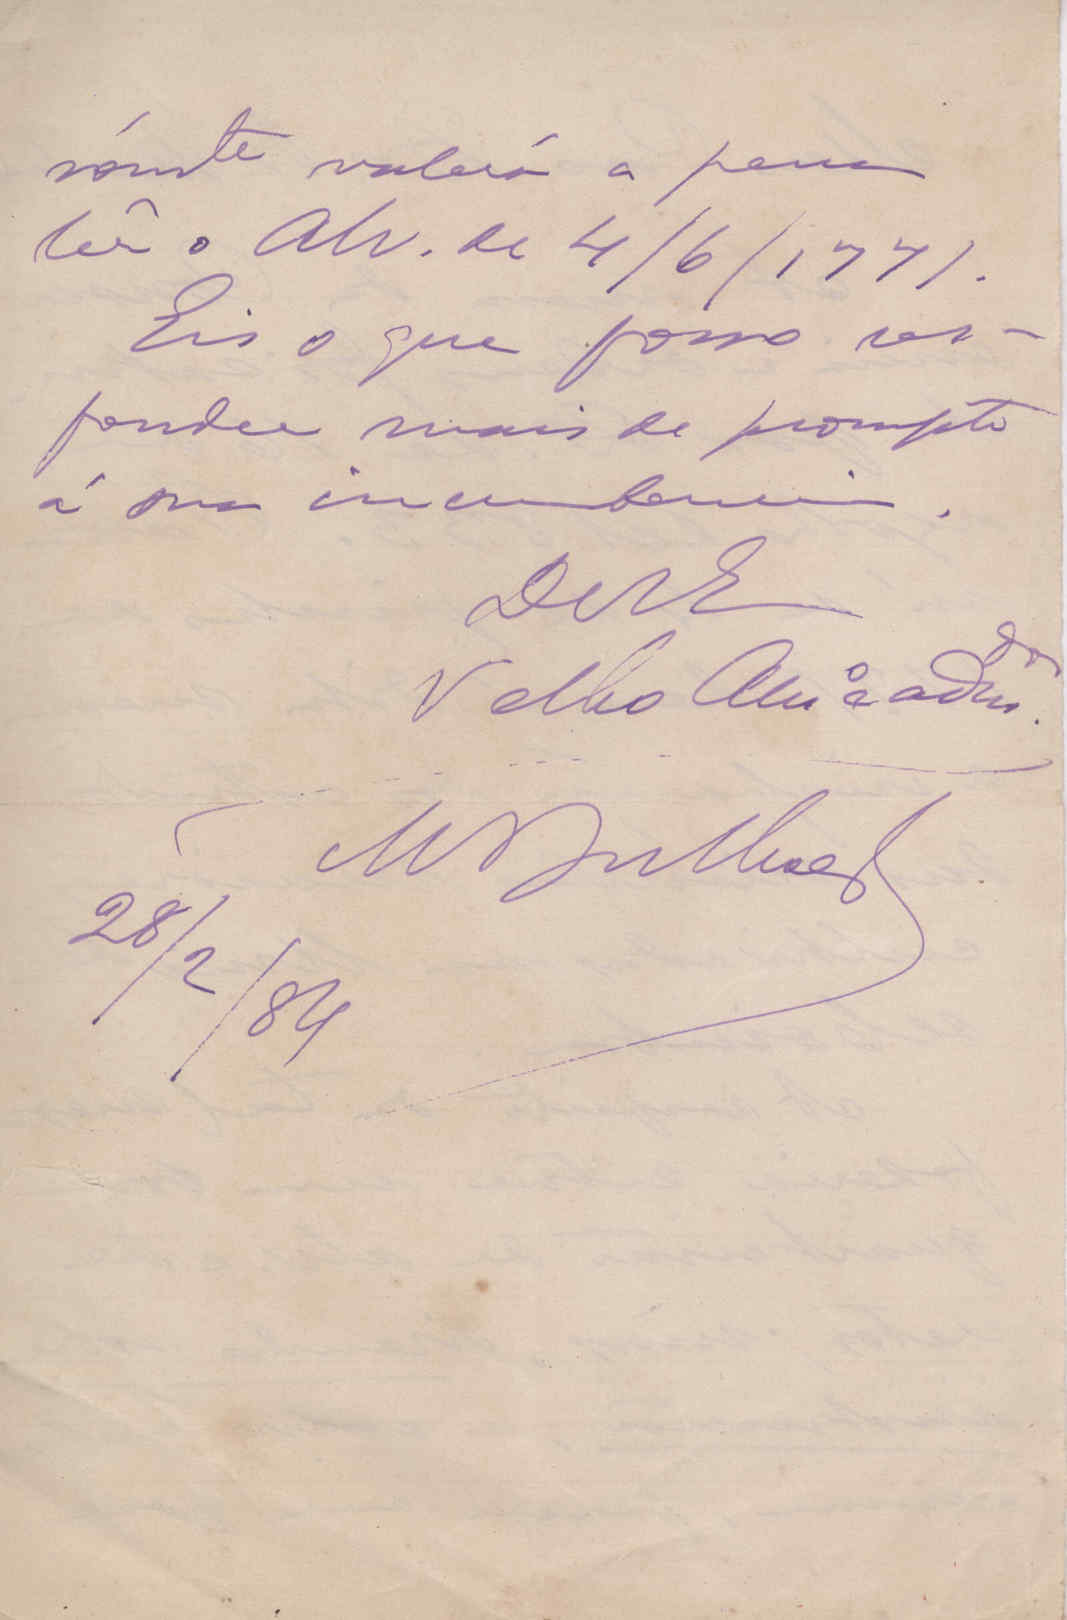 sómte valerá a pena
lêr o Alv. de 4/6/1771.
Eis o que posso res-
ponder mais de prompto
á sua incumbencia.
De V E
Velho Amo e admdor.
M Bulhões
28/2/84